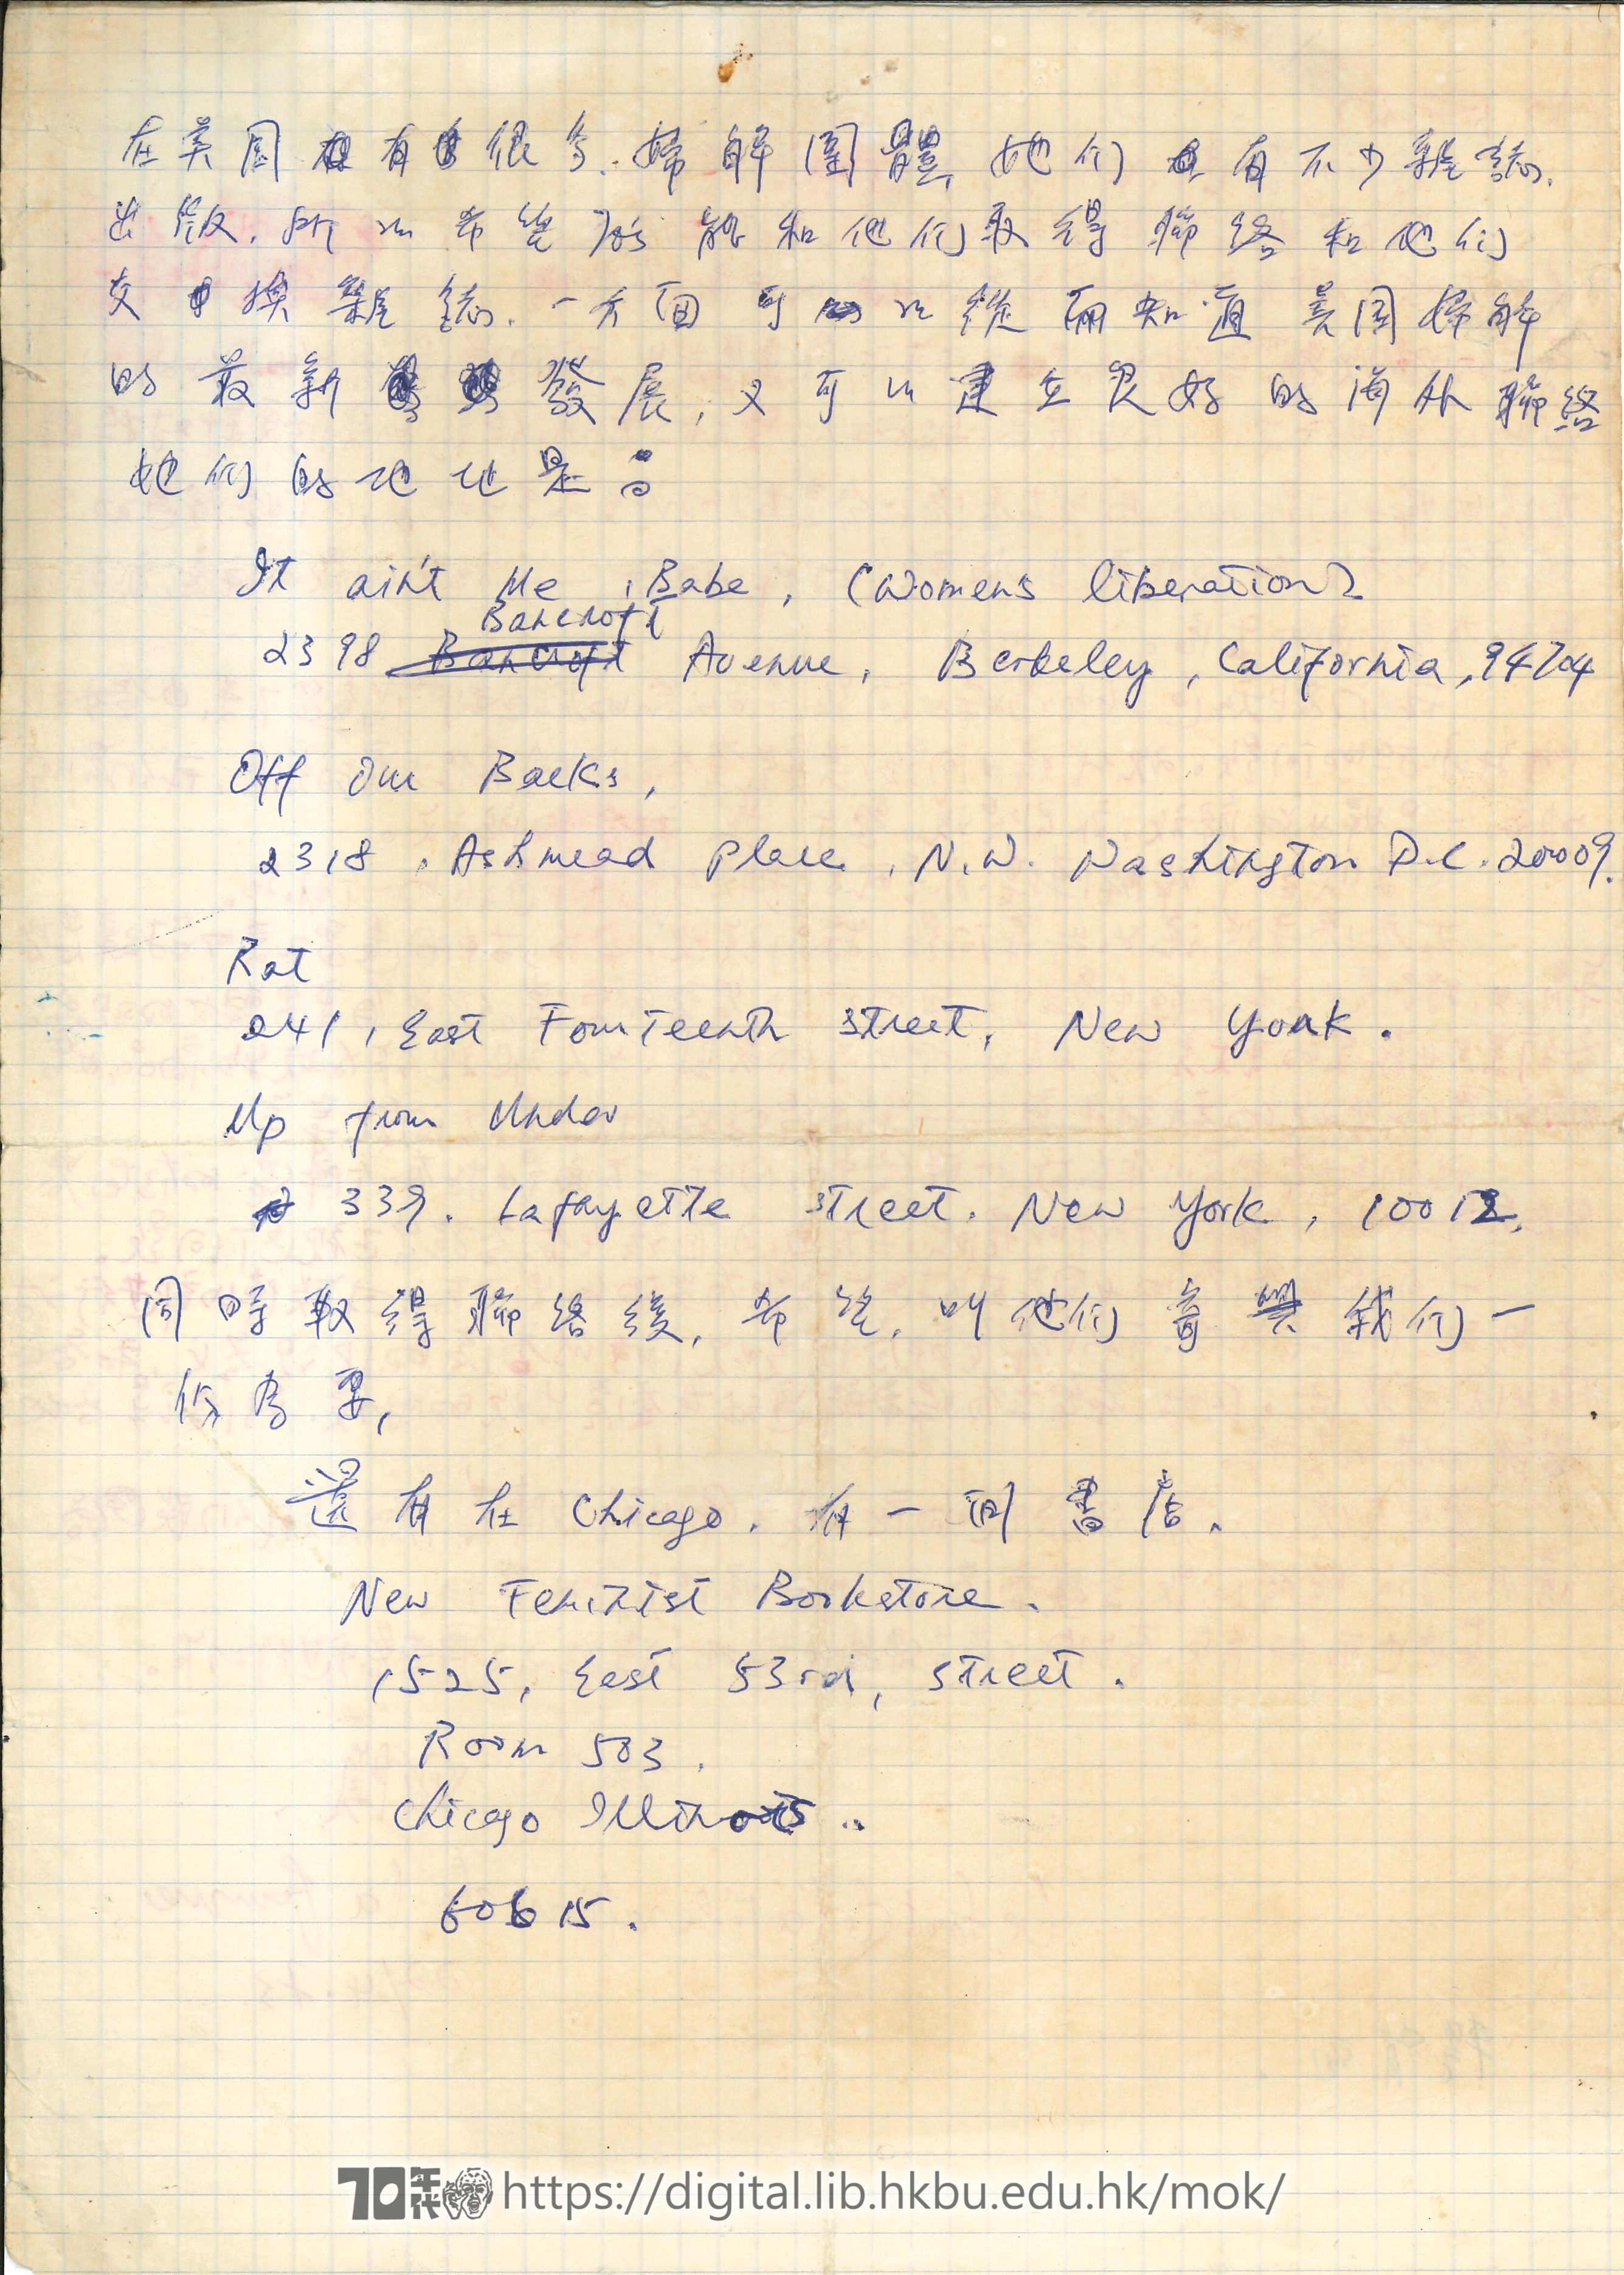 在美國有很多.婦解團體,她们也有不少雜誌.
出版.所以希望你能和他们取得聯络和他们
交換雜誌.一方面可以從而知道美国婦解
的最新發展,又可以建立良好的海外聯络
她们的地址是:
It ain't Me, Babe, (Women's liberation)
Bancroft
2398 Bancroft Avenue, Berkeley, California, 94704
Off Our Backs,
2318, Ashmead Place, N.W. Washington D.C. 20009.
Rat
241, East Fourteenth Street, New York.
Up from Under
339. Lafayette Street. New York, 10012.
同時取得聯络後,希望,叫他们寄與我们一
份為要,
還有在Chicago.有一间書店.
New Feminist Bookstore.
1525, East 53rd, Street.
Room 503.
Chicago Illinois..
60615.
70年代 https://digital.lib.hkbu.edu.hk/mok/